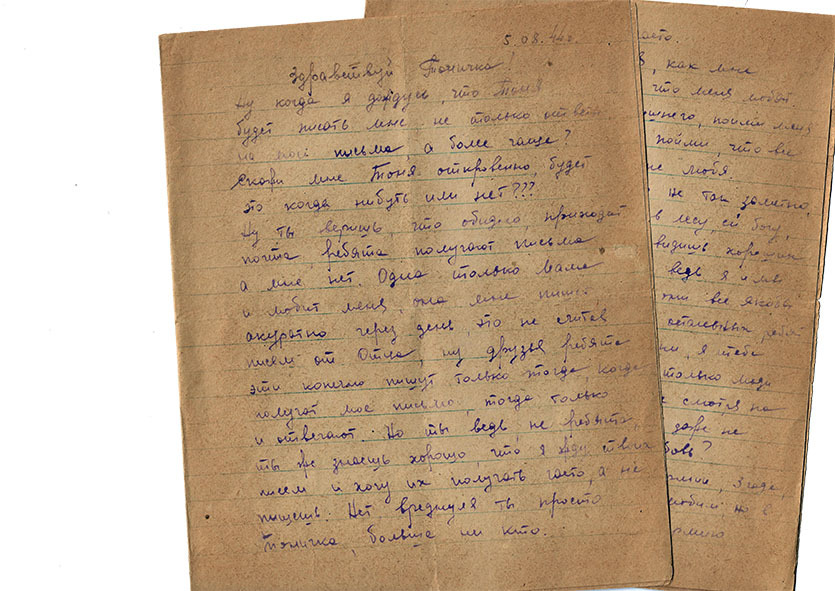 5.08.
Здравствуй Тоничка!
Ну когда я дождусь, что Тоня
будет писать мне, не только ответы
на мои письма, а более чаще?
Скажи мне Тоня откровенно, будет
это когда нибуть или нет???
Ну ты веришь, что обидно, приходит
почта, ребята получают письма
а мне нет. Одна только Мама
и любит меня, она мне пишет,
акуратно через день, это не считая
писем от Отца, ну друзья ребята
эти конечно пишут только тогда, когда
получат мое письмо, тогда только
и отвечают. Но ты ведь, не ребята,
ты же знаешь хорошо, что я жду твоих
писем и хочу их получать часто, а не
пишешь. Нет, вреднуля ты просто
Тоничка, больше ни кто.
как мне
что меня любят
пойми меня
пойми, что все
не любя.
не так заметно,
в лесу, ей богу,
видишь хороших
ведь я и мы
все
остальных, ребят
я тебе
только люди
смотря на
даже не
3 года,